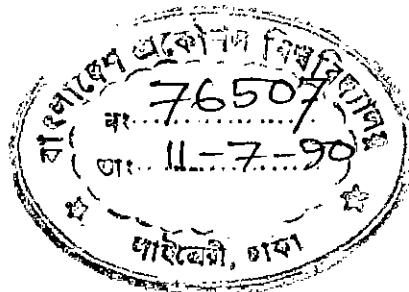 বাংলাদেশ প্রকৌশল বিশ্ববিদ্যালয়
নং 76507
তাং 11-7-90
লাইব্রেরী, ঢাকা